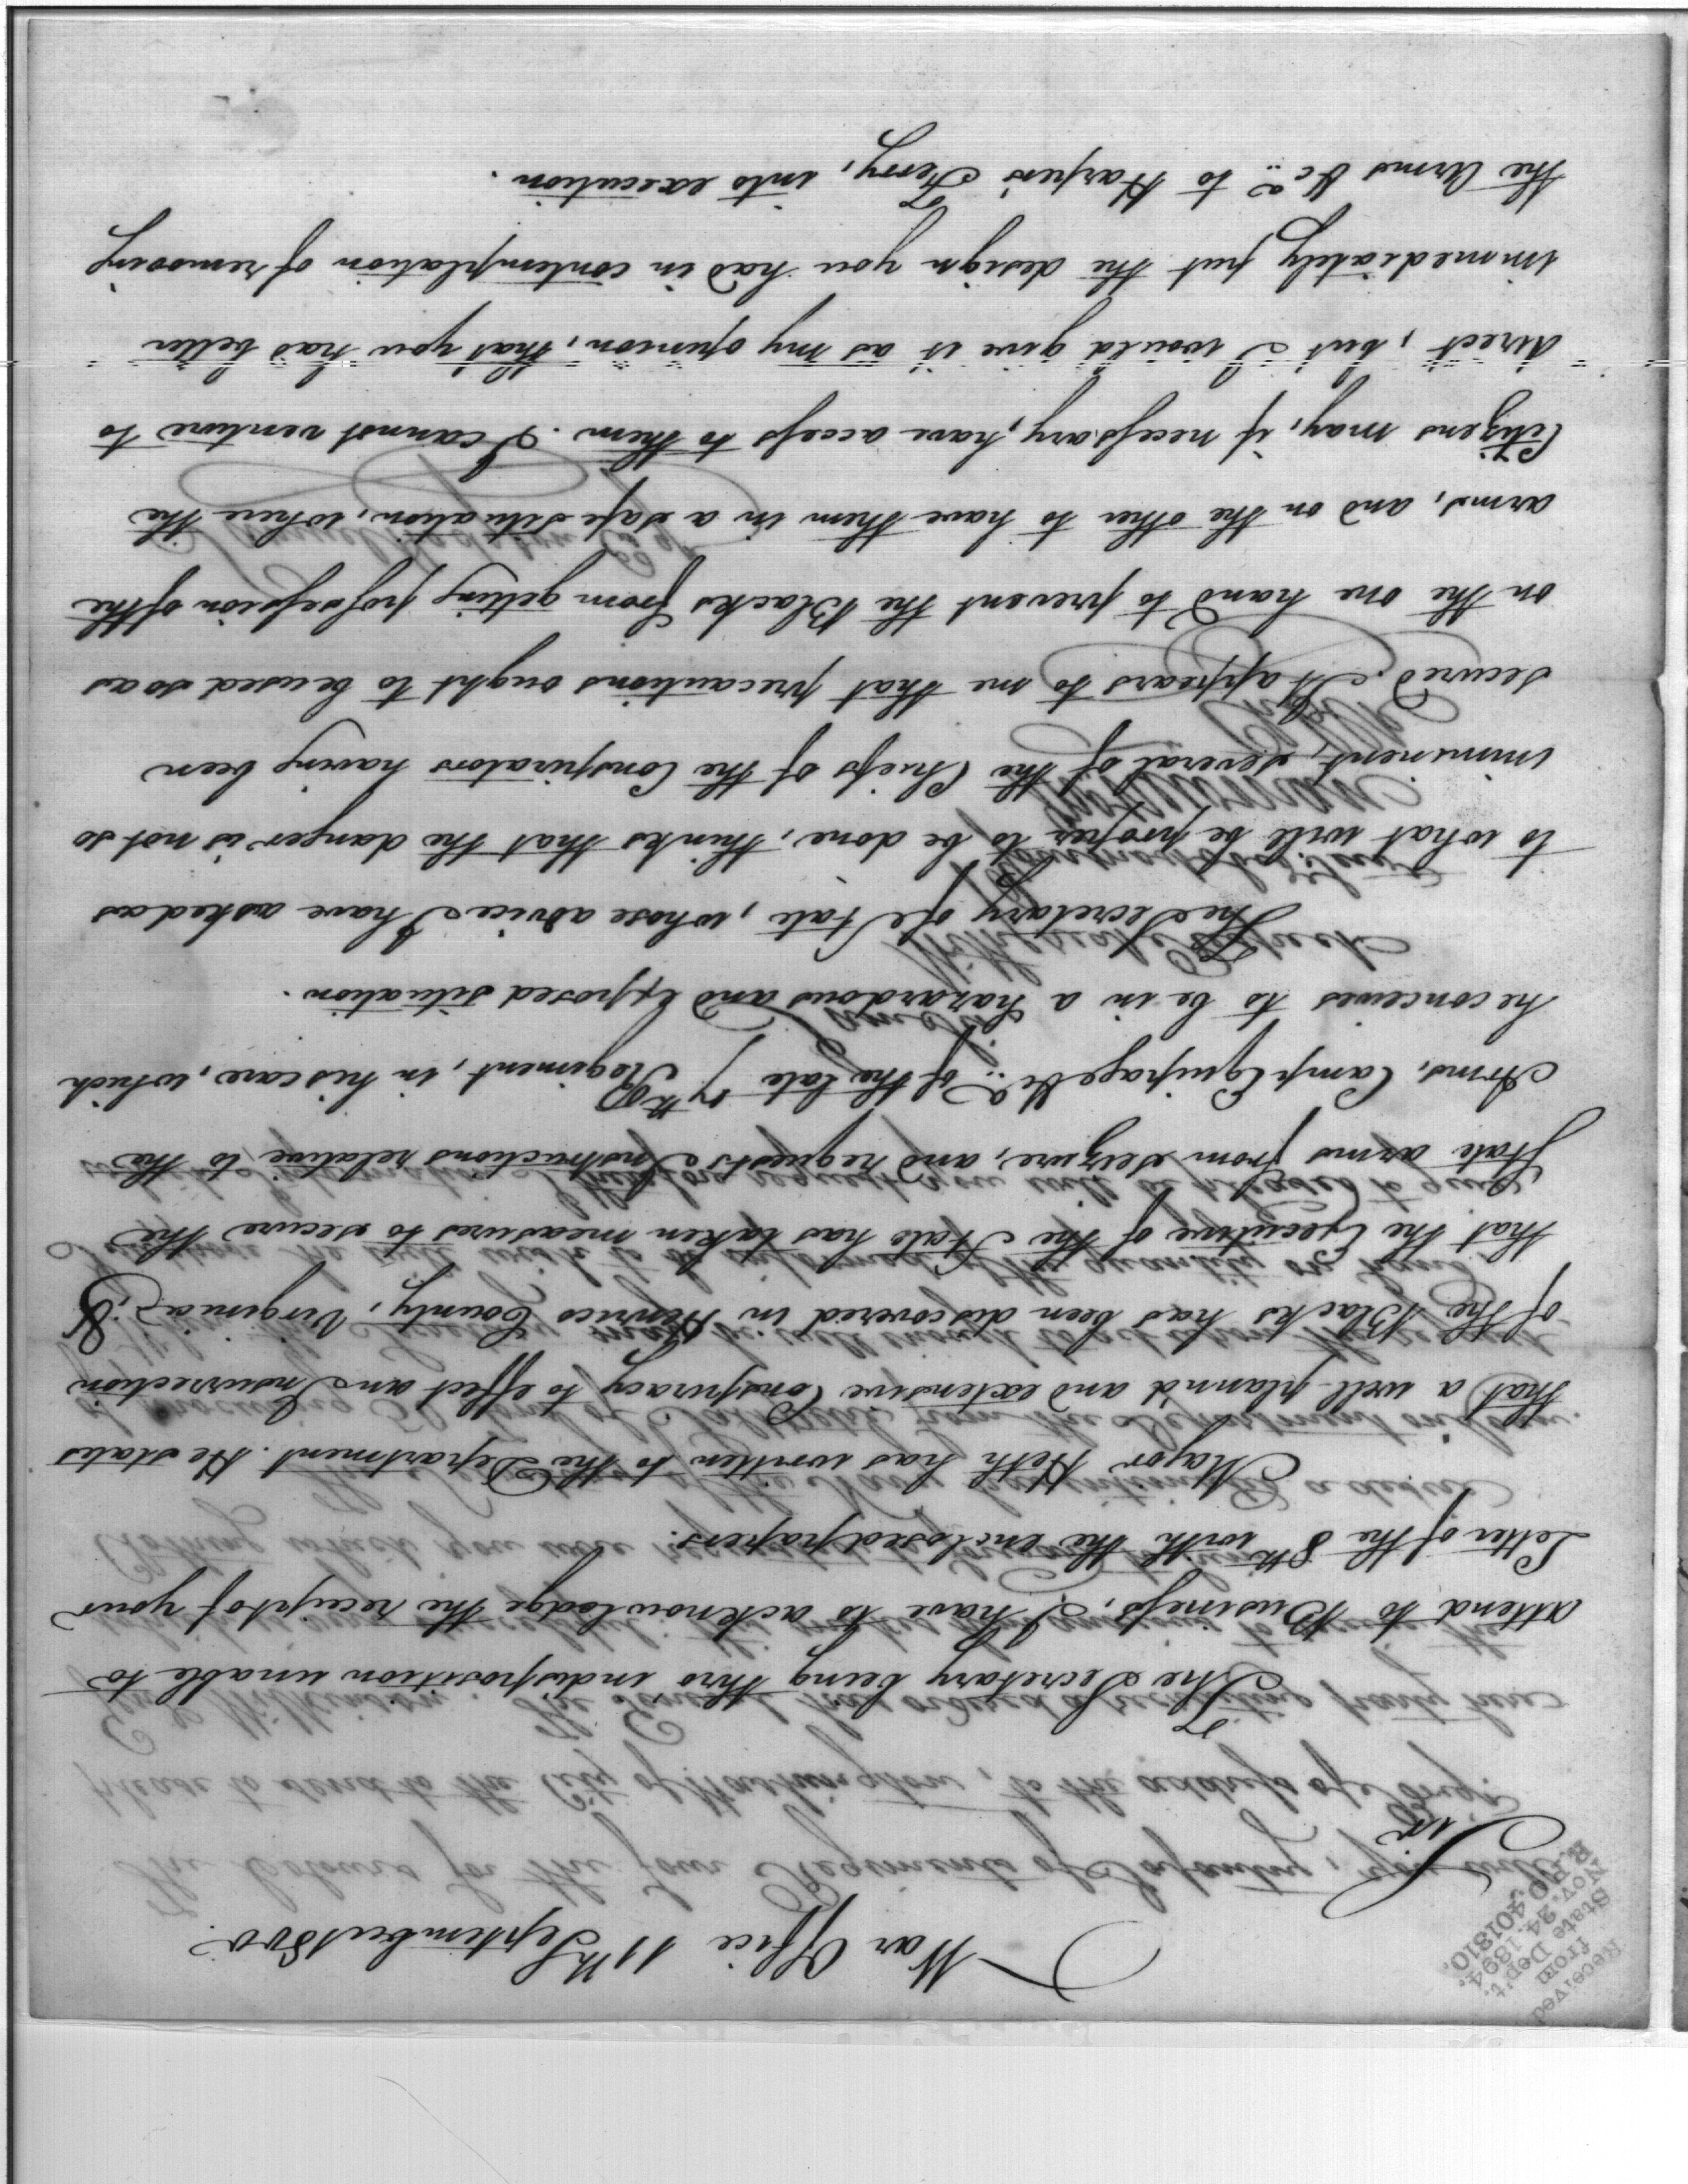 Received
from
State Dep't.
Nov. 24, 1894.
R.P.O. 401810.
War Office 11th September 1800.
Sir
The Secretary being thro indisposition unable to
attend to Business, I have to acknowledge the receipt of your
Letter of the 8th with the enclosed papers.
Major Heth has written to the Department. He states
that a well plann'd and extensive Conspiracy to effect an Insurrection
of the Blacks has been discovered in Henrico County, Virginia, &
that the Executive of the State has taken measures to secure the
State arms from seizure, and requests Instructions relative to the
Arms, Camp Equipage &c. of the late 7th Regiment, in his care, which
he conceives to be in a hazardous and exposed situation.
The Secretary of State, whose advice I have asked as
to what will be proper to be done, thinks that the danger is not so
imminent, several of the Chiefs of the Conspirators having been
secured. It appears to me that precautions ought to be used so as
on the one hand to prevent the Blacks from getting possession of the
arms, and on the other to have them in a safe situation, where the
Citizens may, if necessary, have access to them. I cannot venture to
direct, but I would give it as my opinion, that you had better
immediately put the design you had in contemplation of removing
the Arms &c. to Harpers Ferry, into execution.